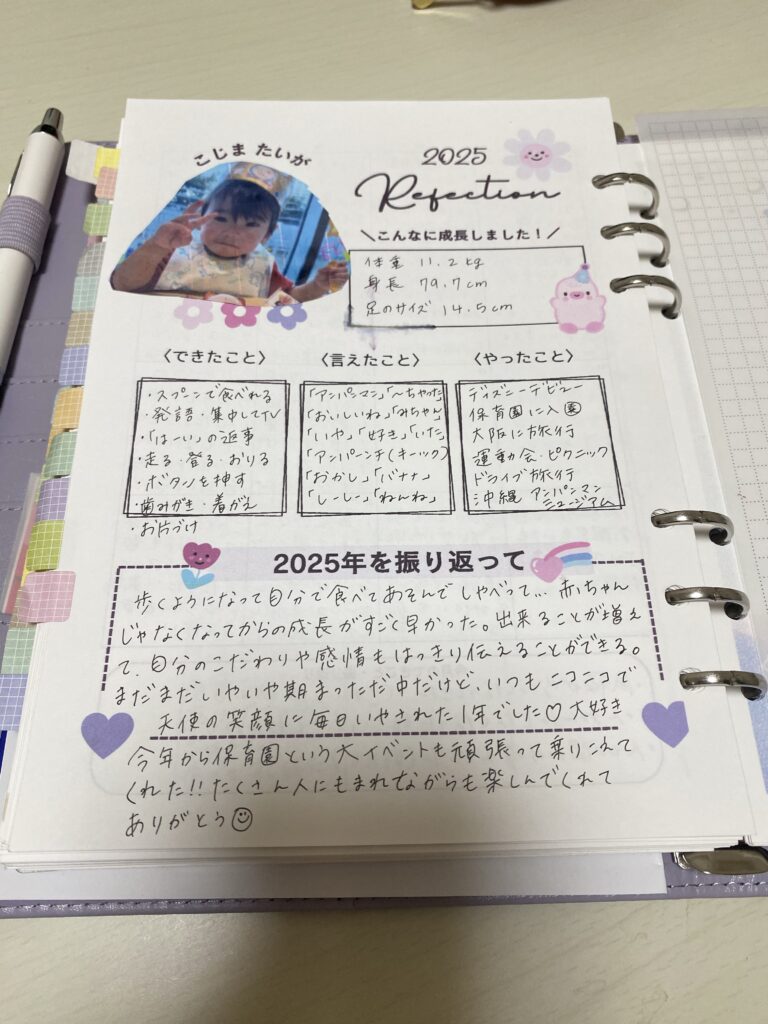 こじま たいが
2025
Refection
＼こんなに成長しました！／
体重 11.2kg
身長 79.7cm
足のサイズ 14.5cm
〈できたこと〉
・スプーンで食べれる
・発語・集中してTV
・「はーい」の返事
・走る・登る・おりる
・ボタンを押す
・歯みがき・着がえ
・お片づけ
〈言えたこと〉
「アンパンマン」「〜ちゃった」
「おいしいね」「みちゃん」
「いや」「好き」「いた」
「アンパーンチ(キーック)
「おかし」「バナナ」
「しーしー」「ねんね」
〈やったこと〉
ディズニーデビュー
保育園に入園
大阪に旅行
運動会・ピクニック
ドライブ旅行
沖縄 アンパンマン
ミュージアム
2025年を振り返って
歩くようになって自分で食べてあそんでしゃべって... 赤ちゃん
じゃなくなってからの成長がすごく早かった。出来ることが増え
て、自分のこだわりや感情もはっきり伝えることができる。
まだまだいやいや期まっただ中だけど、いつもニコニコで
天使の笑顔に毎日いやされた1年でした♡大好き
今年から保育園という大イベントも頑張って乗りこえて
くれた!!たくさん人にもまれながらも楽しんでくれて
ありがとう☺